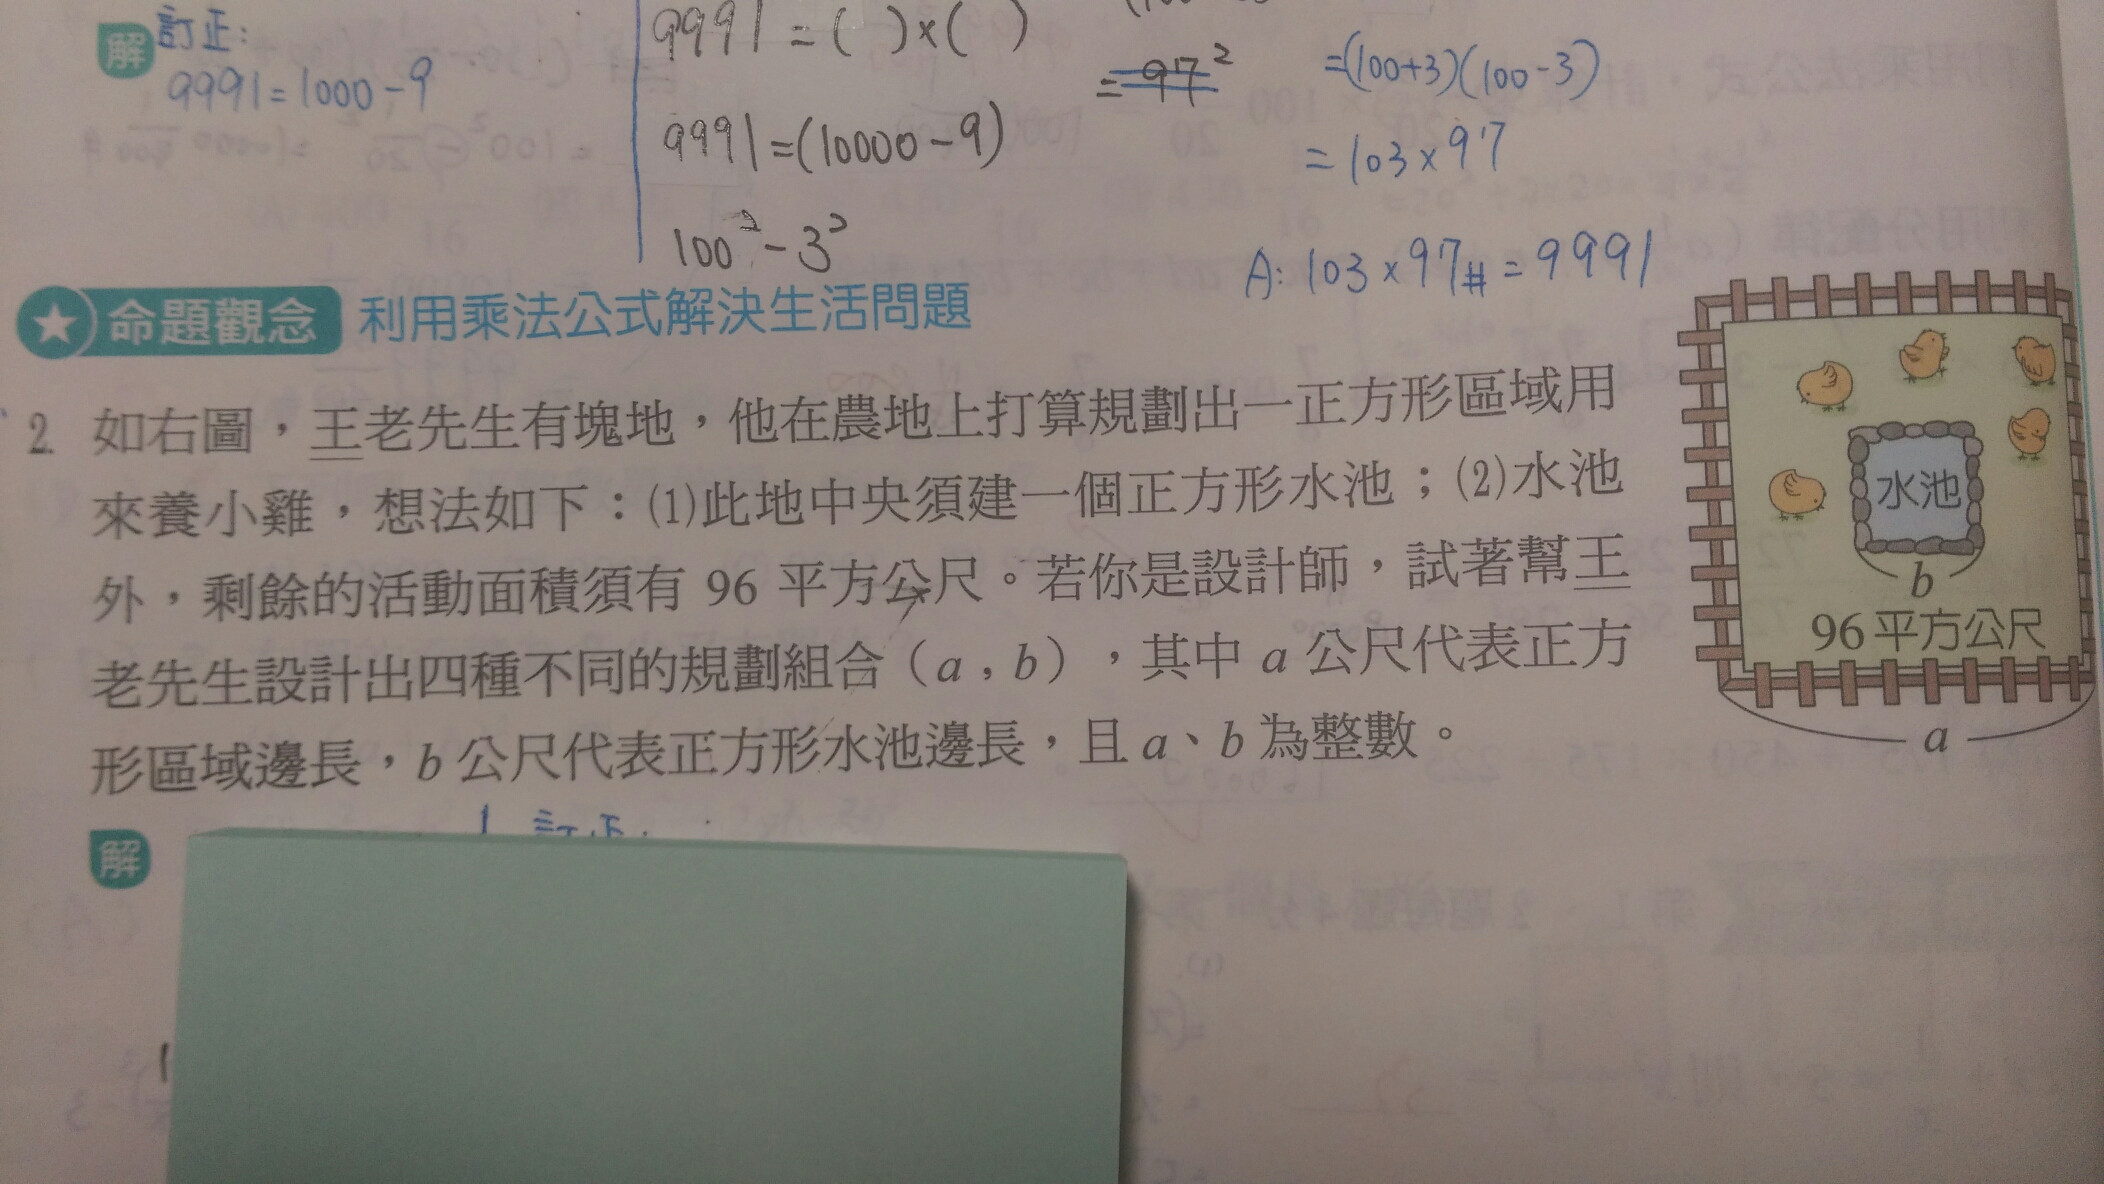 解 訂正：
9991=1000-9
9991=( )×( )
9991=(10000-9)
100²-3²
=97²
=(100+3)(100-3)
=103×97
A: 103×97#=9991
命題觀念 利用乘法公式解決生活問題
2. 如右圖，王老先生有塊地，他在農地上打算規劃出一正方形區域用
來養小雞，想法如下：(1)此地中央須建一個正方形水池；(2)水池
外，剩餘的活動面積須有 96 平方公尺。若你是設計師，試著幫王
老先生設計出四種不同的規劃組合（a，b），其中 a 公尺代表正方
形區域邊長，b 公尺代表正方形水池邊長，且 a、b 為整數。
水池
b
96平方公尺
a
解